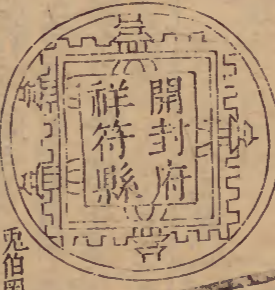 開封府
祥符縣
兎伯